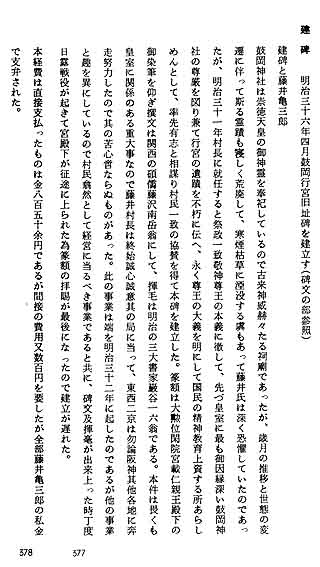 建碑　明治三十六年四月鼓岡行宮旧址碑を建立す(碑文の部参照)
建碑と藤井亀三郎
鼓岡神社は崇徳天皇の御神霊を奉祀しているので古来神威赫々たる祠廟であったが、歳月の推移と世態の変
遷に伴って斯る霊蹟も寝しく荒廃して、寒煙枯草に湮没する虞もあって藤井氏は深く恐懼していたのであっ
たが、明治三十一年村長に就任すると祭政一致敬神尊王の本義に徹して、先づ皇室に最も御因縁深い鼓岡神
社の尊厳を図り兼て行宮の遺蹟を不朽に伝へ、永く尊王の大義を明にして国民の精神教育上資する所あらし
めんとして、率先有志と相謀り村民一致の協賛を得て本碑を建立した。篆額は大勲位閑院宮載仁親王殿下の
御染筆を仰ぎ撰文は関西の碩儒藤沢南岳翁にして、揮毛は明治の三大書家巌谷一六翁である。本件は畏くも
皇室に関係のある重大事なので藤井村長は終始誠心誠意其の局に当って、東西二京は勿論阪神其他各地に奔
走努力したので其の苦心昝ならぬものがあった。此の事業は端を明治三十二年に起したのであるが他の事業
と趣を異にしているので村民翕然として経営に当るべき事業であると共に、碑文及揮毫が出来上った時丁度
日露戦役が起きて宮殿下が征途に上られた為篆額の拝賜が最後になったので建立が遅れた。
本経費は直接支払ったものは金八百五十余円であるが間接の費用又数百円を要したが全部藤井亀三郎の私金
で支弁された。
377
378